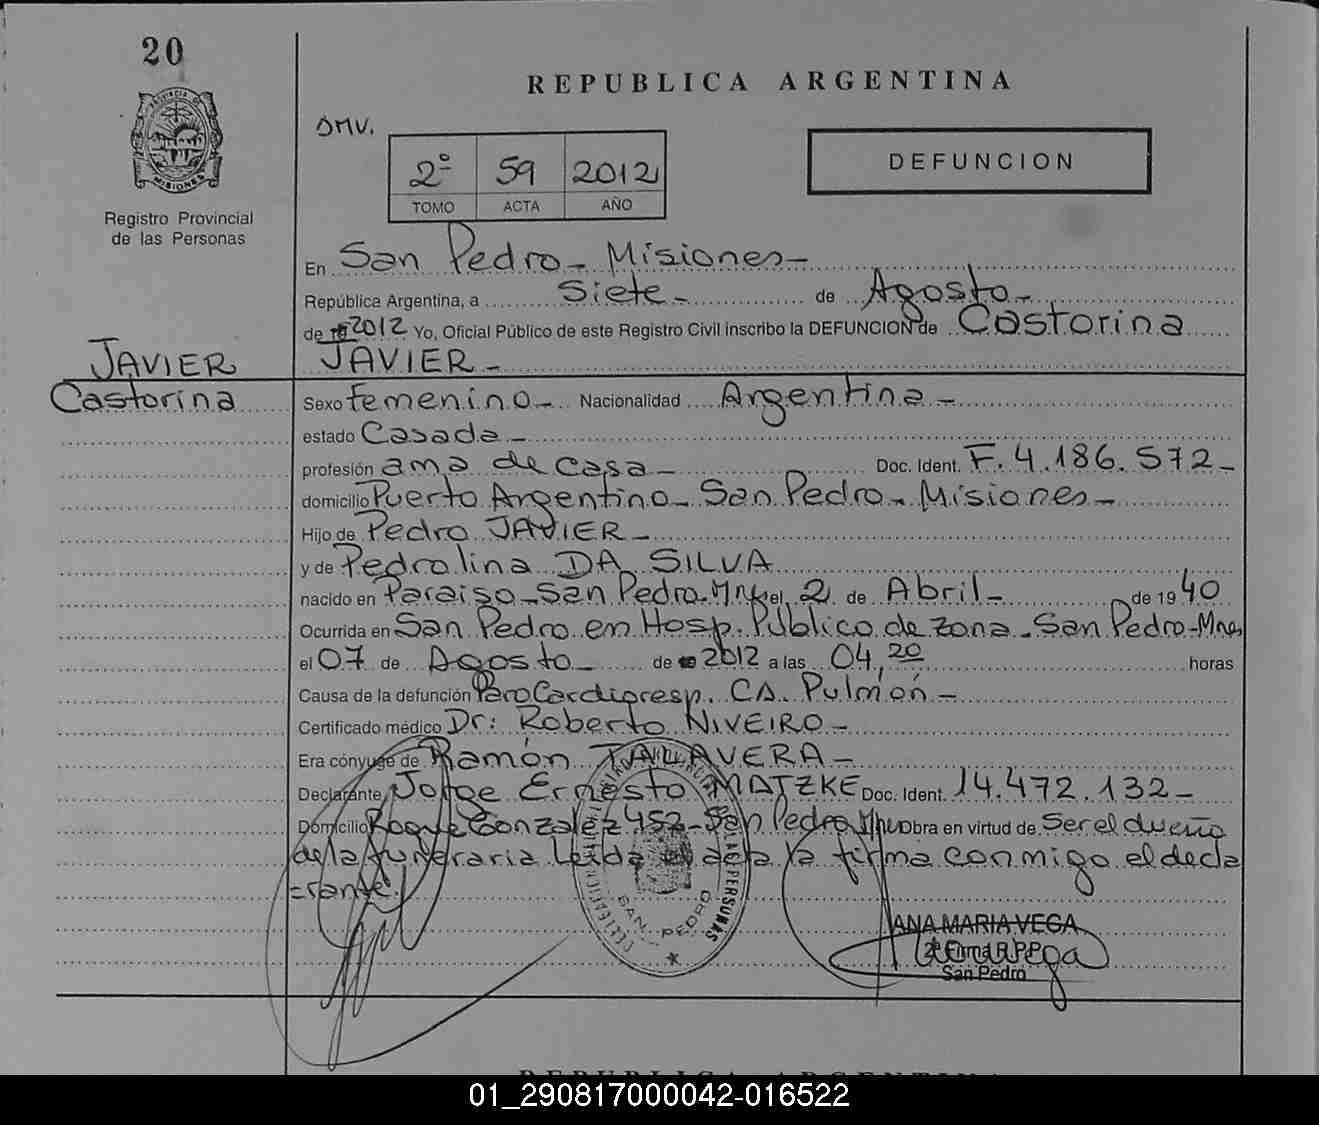 20
REPUBLICA ARGENTINA
DMV.
2º 59 2012
TOMO ACTA AÑO
DEFUNCION
PROVINCIA DE
MISIONES
Registro Provincial
de las Personas
En San Pedro - Misiones -
República Argentina, a Siete - de Agosto -
de 2012 Yo, Oficial Público de este Registro Civil inscribo la DEFUNCION de Castorina
JAVIER JAVIER -
Castorina Sexo Femenino - Nacionalidad Argentina -
estado Casada -
profesión ama de casa - Doc. Ident. F. 4.186.572 -
domicilio Puerto Argentino - San Pedro - Misiones -
Hijo de Pedro JAVIER -
y de Pedrolina DA SILVA
nacido en Paraiso - San Pedro - Mnes el 2 de Abril - de 1940
Ocurrida en San Pedro en Hosp. Público de zona - San Pedro - Mnes
el 07 de Agosto - de 2012 a las 04,20 horas
Causa de la defunción Paro Cardioresp. CA. Pulmón -
Certificado médico Dr: Roberto NIVEIRO -
Era cónyuge de Ramón TALAVERA -
Declarante Jorge Ernesto MATZKE Doc. Ident. 14.472.132 -
Domicilio Roque Gonzalez 452 - San Pedro Mnes Obra en virtud de Ser el dueño
de la funeraria Leida el acta la firma conmigo el decla
rante.
SAN PEDRO
ANA MARIA VEGA
San Pedro
REPUBLICA ARGENTINA
01_290817000042-016522